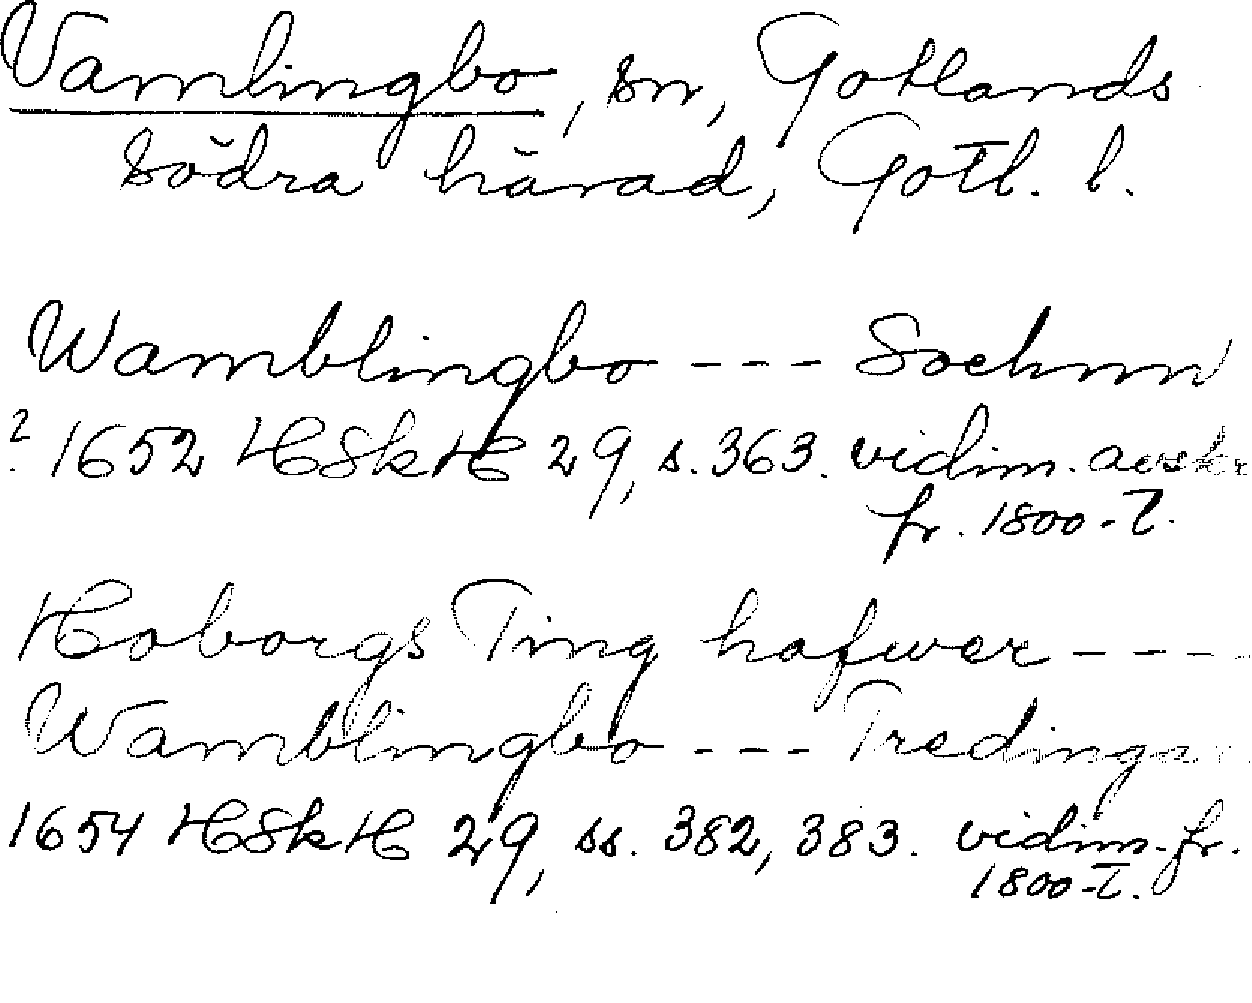 Vamlingbo, sn, Gotlands
södra härad, Gotl. l.
Wamblingbo --- Sochnn
? 1652 HSkH 29, s. 363. vidim. avskr
fr. 1800-t.
Hoborgs Ting hafwer ----
Wamblingbo --- Tredingar
1654 HSkH 29, ss. 382, 383. vidim. fr.
1800-t.